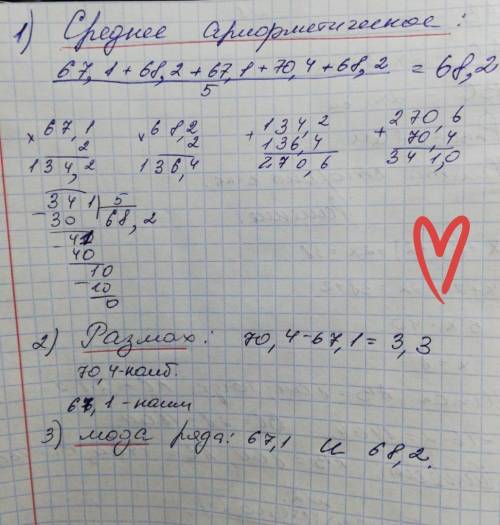 1) Среднее арифметическое:
67,1 + 68,2 + 67,1 + 70,4 + 68,2 = 68,2
5
× 67,1 × 68,2 + 134,2 + 270,6
2 2 136,4 70,4
134,2 136,4 270,6 341,0
- 341 5
30 68,2
- 41
40
10
- 10
0
2) Размах: 70,4 - 67,1 = 3,3
70,4 - наиб.
67,1 - наим
3) мода ряда: 67,1 и 68,2.